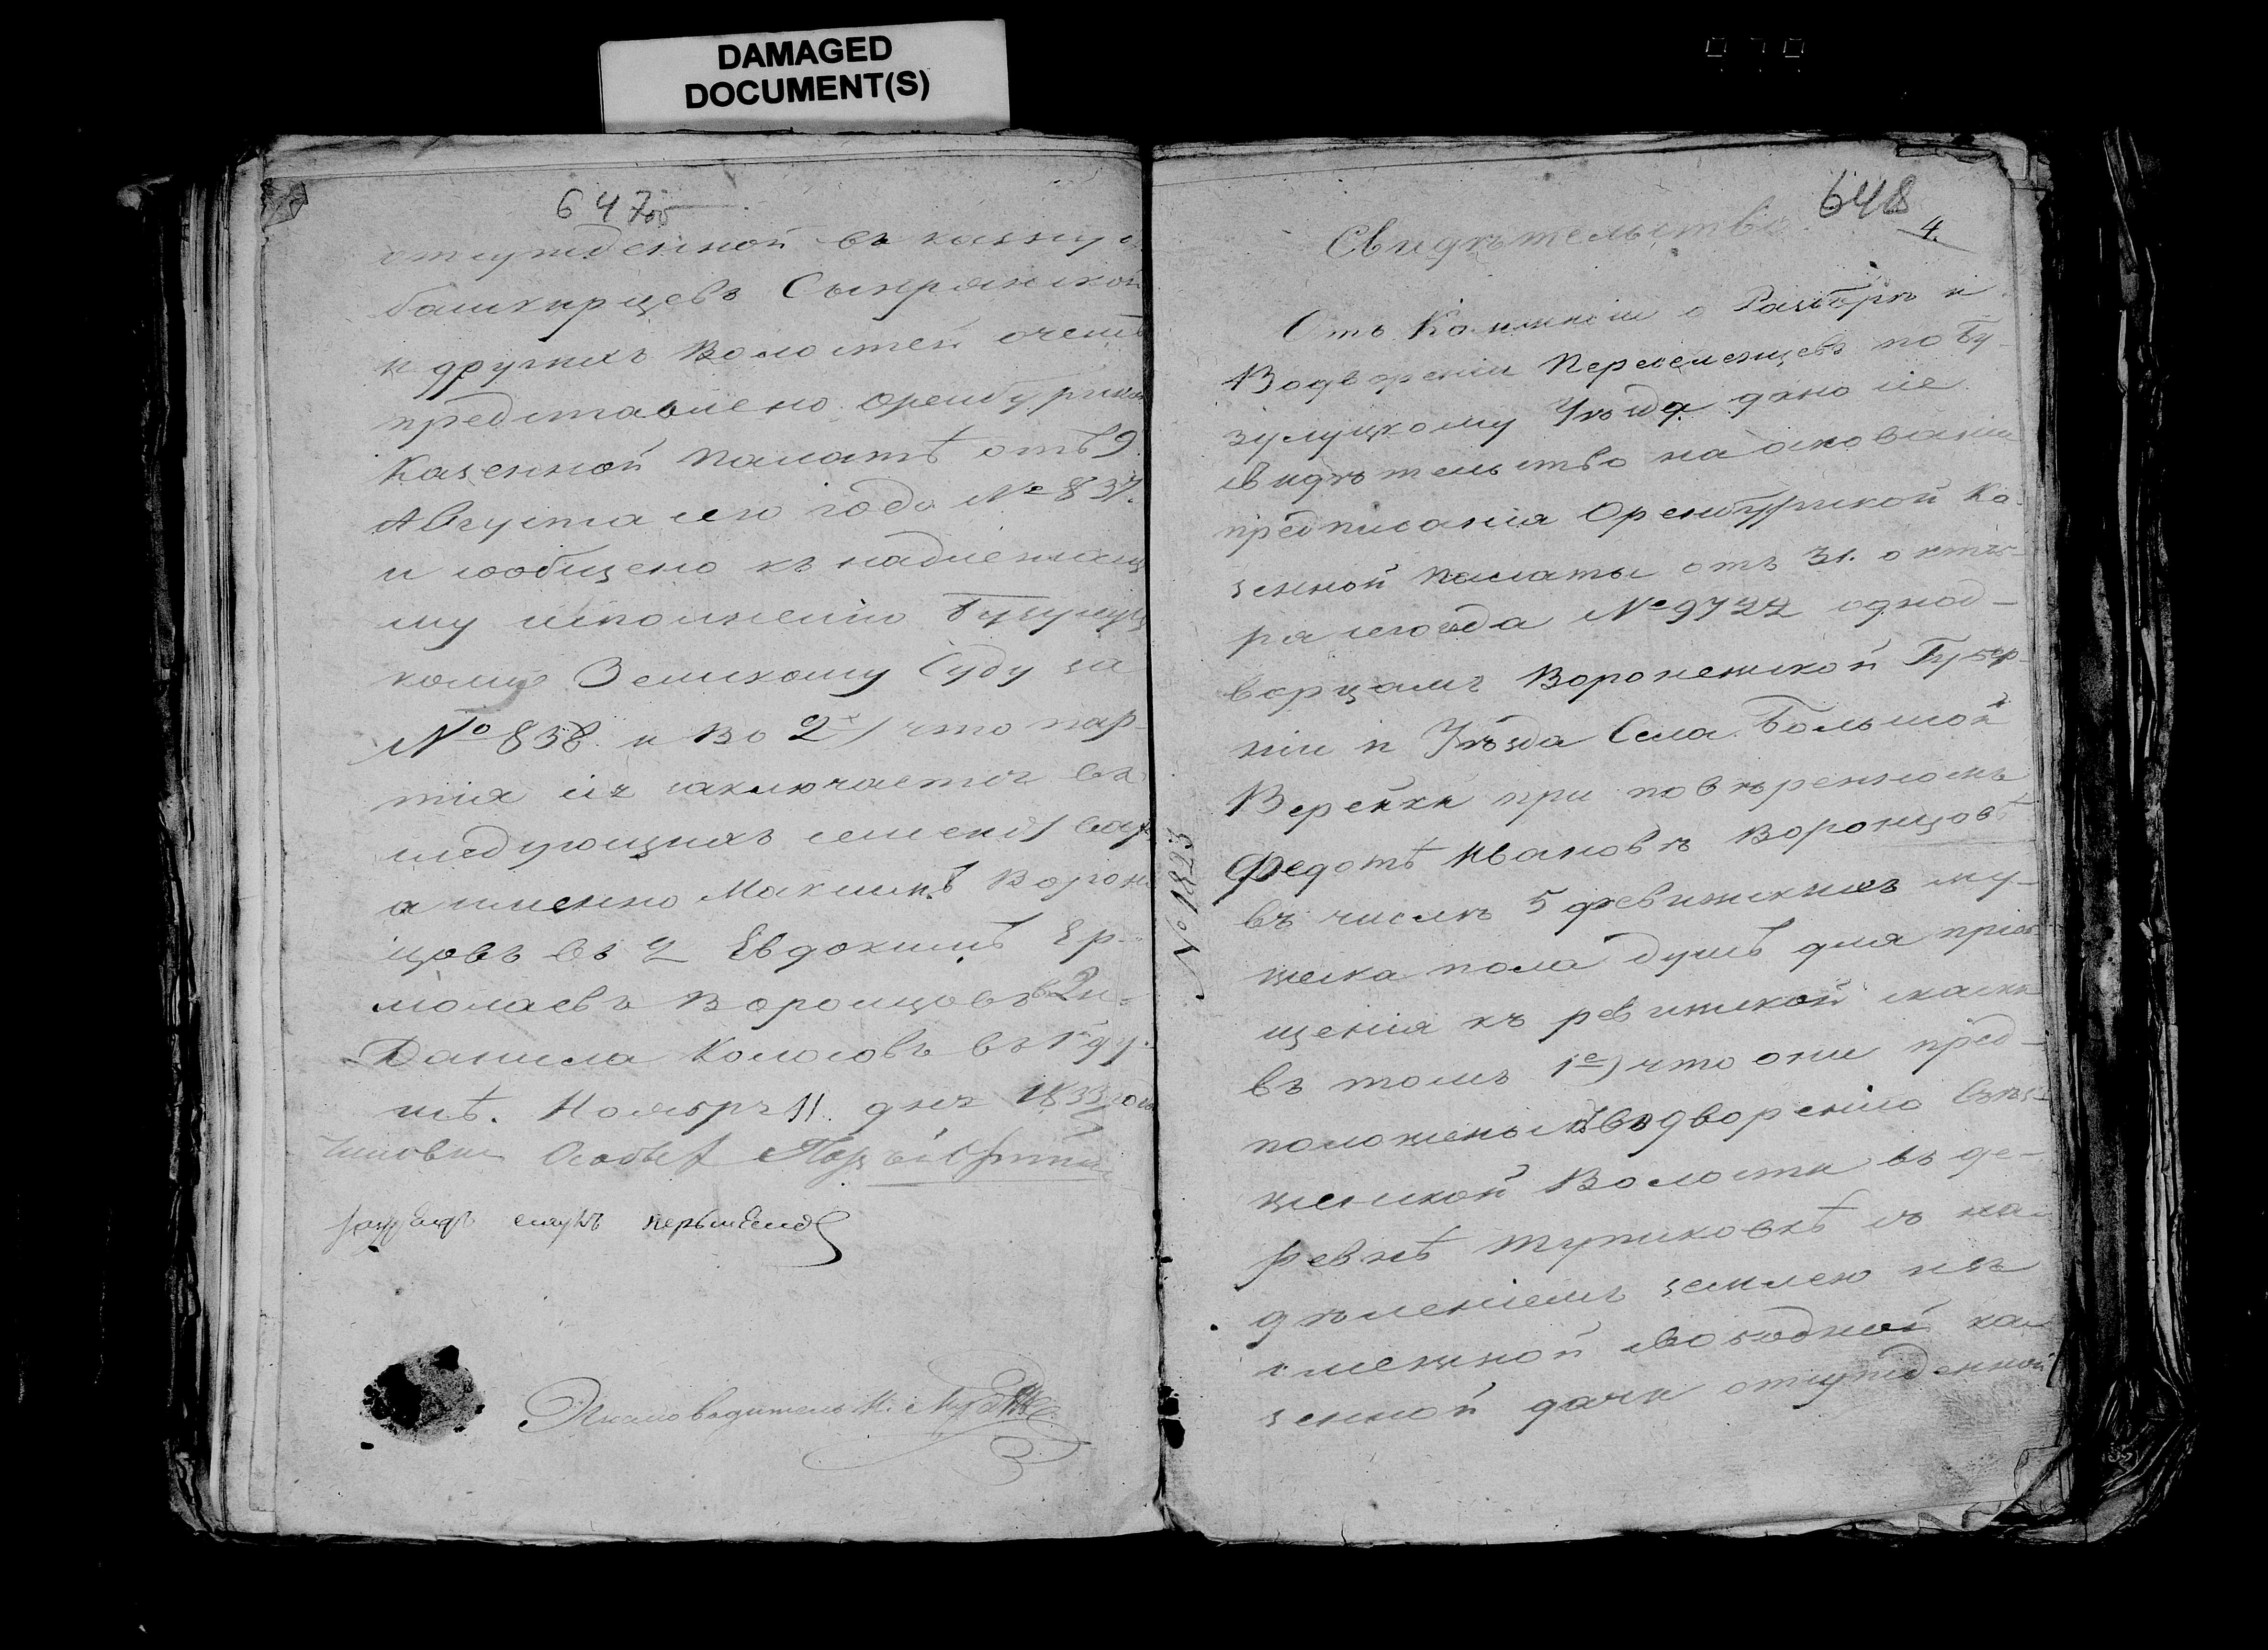 DAMAGED
DOCUMENT(S)
647об
отсужденной въ казну
башкирцевъ Сынрянской
и другихъ Волостей о чемъ
представлено Оренбургской
Казенной Палатѣ отъ 9
Августа сего года № 837.
и сообщено къ надлежаще
му исполненію Бузулуц
кому Земскому Суду за
№ 838 и Во 2х) что пар-
тія сія заключается въ
слѣдующихъ семействахъ
а именно Максимъ Ворон
цовъ въ 2 Евдокимъ Ер-
молаевъ Воронцовъ въ 2 и
Данила Колосовъ въ 1 ду-
шѣ. Ноября 11 дня 1833 года
Чиновн Особых Пор
Письмоводитель
648
4.
Свидѣтельство
Отъ Коммисіи о Разборѣ и
Водвореніи Переселенцевъ по Бу-
зулуцкому Уѣзда дано сіе
свидѣтельство на основаніи
предписанія Оренбургской Ка-
зенной Палаты отъ 31. октяб-
ря сего года № 9722 однод-
ворцамъ Воронежской Губер-
ніи и Уѣзда Села Большой
Верейки при повѣренномъ
Федотѣ Ивановѣ Воронцовѣ
въ числѣ 5 ревижскихъ му-
жеска пола душъ для пріоб-
щенія къ ревижской сказкѣ
въ томъ 1е) что они пред-
положены к водворенію въ
женской Волости въ де-
ревнѣ Тупиковкѣ съ на-
дѣленіемъ землею изъ
смежной свободной ка-
зенной дачи отсужденной
№ 1823